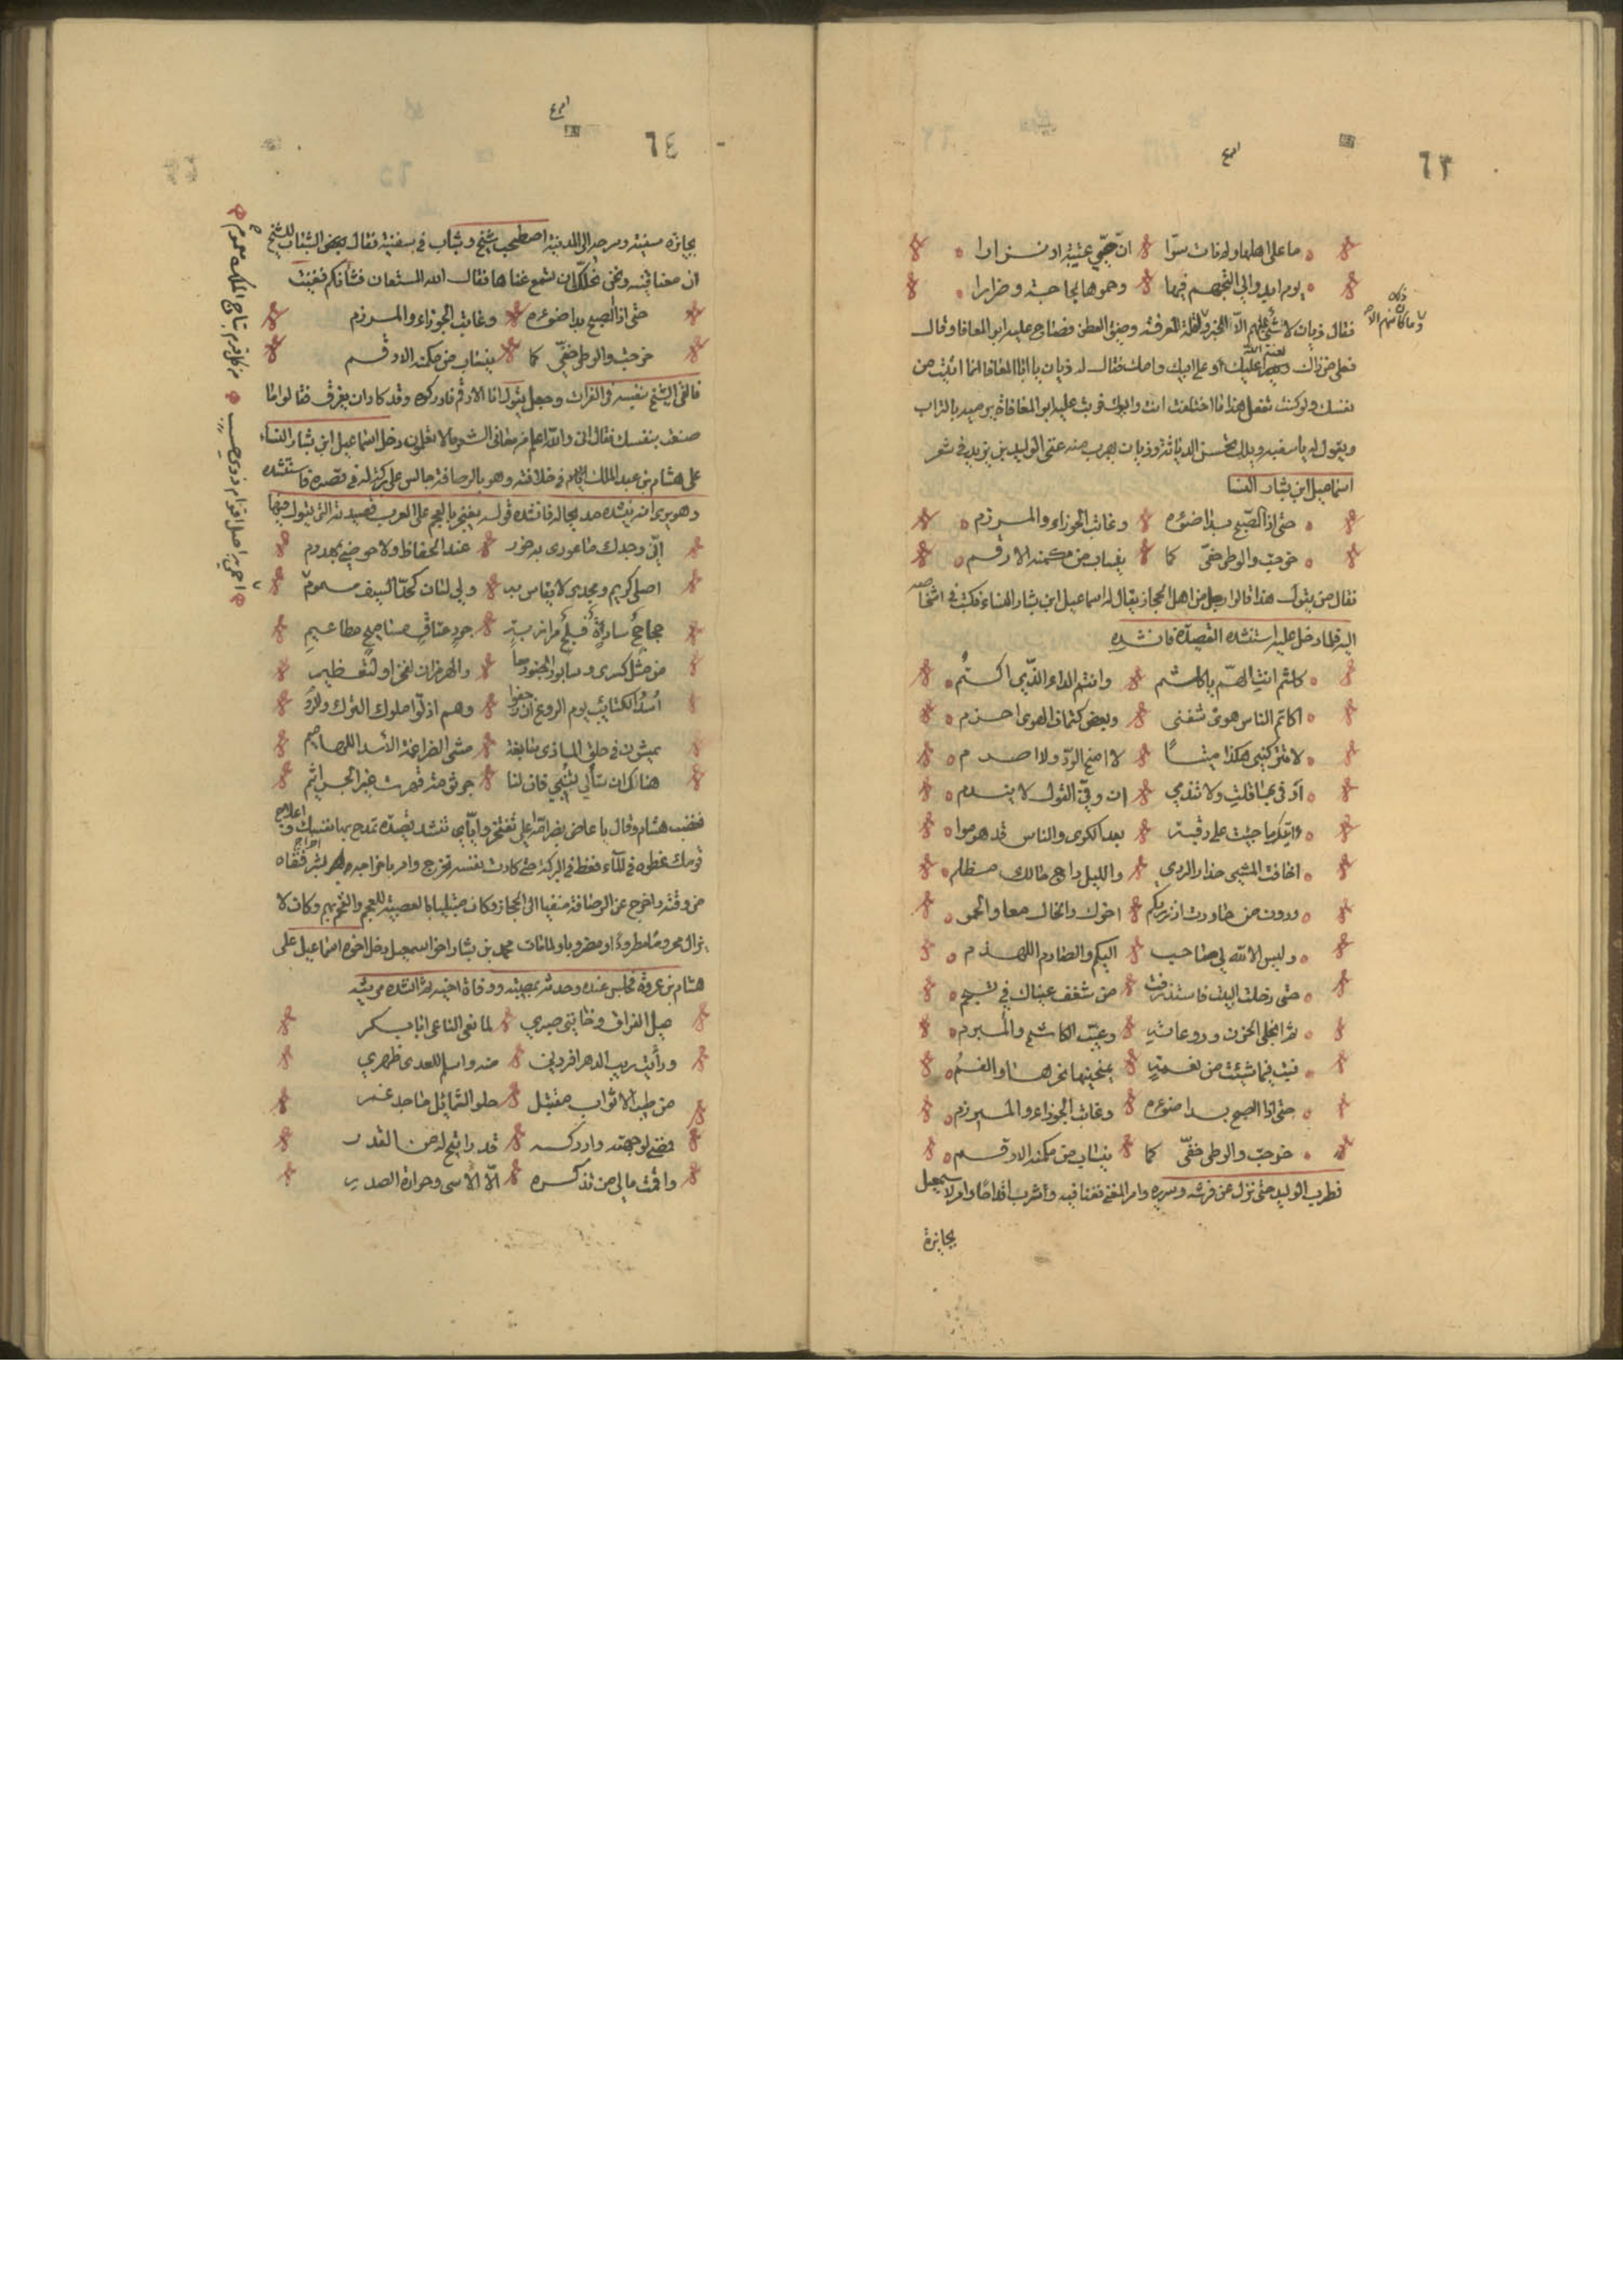 ٦٣
ما على اهلها ولم نات سوّا ان حُيّي عشية او نزارا
يوم ابدوا لي التجهم فيها وحموها لجاجة وضرارا
فقال ذبان لا شيء عليهم الا
فعل من ذلك لعنة الله عليك او على ابيك وامك فقال له ذبان يا ابا المعافا انما اتيت من
نفسك ولو كنت تفعل هذا ما اختلفت انت وابوك فوثب عليه ابو المعافاة يرميه بالتراب
ويقول له يا سفيه ويلك تحسن الدياثة وذبان يهرب منه غنى الوليد بن يزيد في شعر
اسماعيل ابن يشار النسا
حتى اذا الصبح بدا ضوئه وغابت الجوزاء والمرزم
خرجت والوطى خفىّ كما ينساب من مكمنه الارقم
فقال من يقول هذا قالوا رجل من اهل الحجاز يقال له اسماعيل ابن يشار النساء فكتب في اشخاصه
اليه فلما دخل عليه استنشده القصيدة فانشده
كلثم انت الهمّ يا كلثم وانتم الداء الذي اكتم
اكاتم الناس هوى شفنى وبعض كتمان الهوى احزم
لا تتركيني هكذا ميتًا لا امنح الودّ ولا اصرم
اوفى بما قلت ولا تندمي ان وفيّ القول لا يندم
ما جئت على رقبة بعد الكرى والناس قد هوموا
اخافت المشي حذار الردي والليل داج حالك مظلم
ودون من حاورت اذ زرتكم اخوك والخال معا والحمو
وليس الا الله لي صاحب اليكم والصارم اللهذم
حتى دخلت البيت فاستذرفت من شغف عيناك لي تسجم
ثم انجلى الحزن وروعاته وغيّب الكاشح والمبرم
فبت فيما شئت من نعمة يمنحينها نحرها والفم
حتى اذا الصبح بدا ضوئه وغابت الجوزاء والمرزم
خرجت والوطى خفىّ كما ينساب من مكمنه الارقم
فطرب الوليد حتى نزل عن فرشه وسريره وامر المغنى فغنا فيه وشرب اقداحًا وامر لاسمعيل
بجائزة
٦٤
بجائزة سنية وسرحه الى المدينة اصطحب شيخ وشاب في سفينة فقال بعض الشباب للشيخ
ان معنا قينه ونحن نجلك ان تسمع غناها فقال الله المستعان فشانكم فغنت
حتى اذا الصبح بدا ضوئه وغابت الجوزاء والمرزم
خرجت والوطى خفىّ كما ينساب من مكمنه الارقم
فالقى الشيخ نفسه في الفرات وجعل يقول انا الارقم فادركوه وقد كاد ان يغرق فقالوا ما
صنعت بنفسك فقال انى والله اعلم من معاني الشعر ما لا تعلمون دخل اسماعيل ابن يشار النساء
على هشام بن عبد الملك في خلافته وهو بالرصافة جالس على بركة له في قصره فاستنشده
وهو يرى انه ينشده مديحا له فانشده قوله يفتخر بالعجم على العرب قصيدته التي يقول فيها
انّى وجدك ما عودى بذى خور عند الحفاظ ولا حوضي بمهدوم
اصلى كريم ومجدى لا يقاس به ولي لسان كحدّ السيف مسموم
جحاجح سادة بلج مرازبة جرد عتاق مساميح مطاعيم
من مثل كسرى وسابور الجنود معاً والهرمزان لفخر او لتعظيم
اُسد الكتائب يوم الروع ان زحفوا وهم اذلّوا ملوك الترك والروم
يمشون في حلق الماذى سابغة مشي الضراغمة الأسد اللهاميم
هناك ان تسألي تنبي فان لنا جرثومة قهرت عز الجراثيم
فغضب هشام وقال يا عاض بظر امّه اعلى تفتخر واياي تنشد قصيدة تمدح بها نفسك واعلاج
قومك غطوه في الماء فغط في البركة حتى كادت نفسه تخرج وامر باخراجه وهو بشر ونفاه
من وقته واخرج عن الرصافة منفيا الى الحجاز وكان مبتليا بالعصبية للعجم والفخر بهم وكان لا
يزال محروما مطرودا ومضروبا ولما مات محمد بن يشار اخو اسمعيل دخل اخوه اسماعيل على
هشام بن عروة فجلس عنده وحدثه بمصيبته ووفاة اخيه ثم انشده مرثيته
عيل الفراق وخانني صبري لما نعى الناعى ابا بكر
ورأيت ريب الدهر افردني منه واسلم للعدى ظهري
من طيب الاثواب مقتبل حلو الشمائل ماجد غمر
فمضى لوجهته وادركه قد راتيح له من القدر
واقمت مالي من تذكره الّا الأسى وحرارة الصدر
احمى به اصل اقوام ذوى حسب من كل قرم بتاج الملك معموم